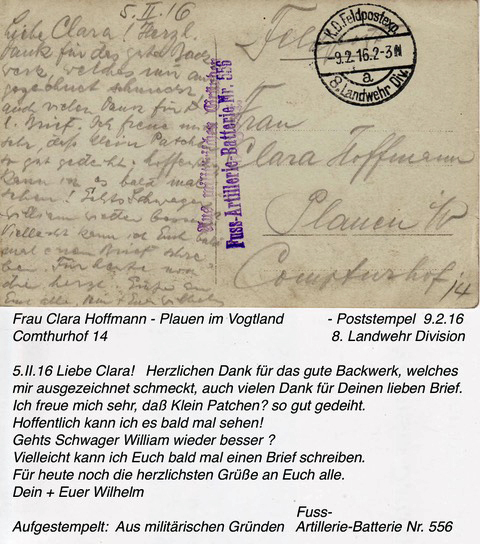 5.II.16
Liebe Clara! Herzl.
Dank für das gute Back
werk, welches mir au
gezeichnet schmeckt,
auch vielen Dank für D
l. Brief. Ich freue mi
sehr, daß klein Patchen
so gut gedeiht. Hoffentl
kann ich es bald mal
sehen! Gehts Schwager
William wieder besser?
Vielleicht kann ich Euch bald
mal einen Brief schrei
ben. Für heute noch
die herzl. Grüße an
Euch alle. Dein + Euer Wilhelm
Aus militärischen Gründen
Fuss-Artillerie-Batterie Nr. 556
K.D. Feldpostexp.
9.2.16.2-3N
a
8. Landwehr Div.
Frau
Clara Hoffmann
Plauen i/V
Comthurhof 14
Frau Clara Hoffmann - Plauen im Vogtland - Poststempel 9.2.16
Comthurhof 14 8. Landwehr Division
5.II.16 Liebe Clara! Herzlichen Dank für das gute Backwerk, welches
mir ausgezeichnet schmeckt, auch vielen Dank für Deinen lieben Brief.
Ich freue mich sehr, daß Klein Patchen? so gut gedeiht.
Hoffentlich kann ich es bald mal sehen!
Gehts Schwager William wieder besser ?
Vielleicht kann ich Euch bald mal einen Brief schreiben.
Für heute noch die herzlichsten Grüße an Euch alle.
Dein + Euer Wilhelm
Fuss-
Aufgestempelt: Aus militärischen Gründen Artillerie-Batterie Nr. 556